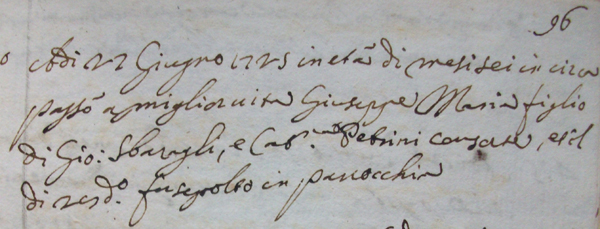 96
Adi 22 Giugno 1725 in età di mesi sei in circa
passò a miglior vita Giuseppe Maria figlio
di Gio: Sbaragli, e Cat.na Petrini consorte, et il
di sud.o fu sepolto in parrocchia